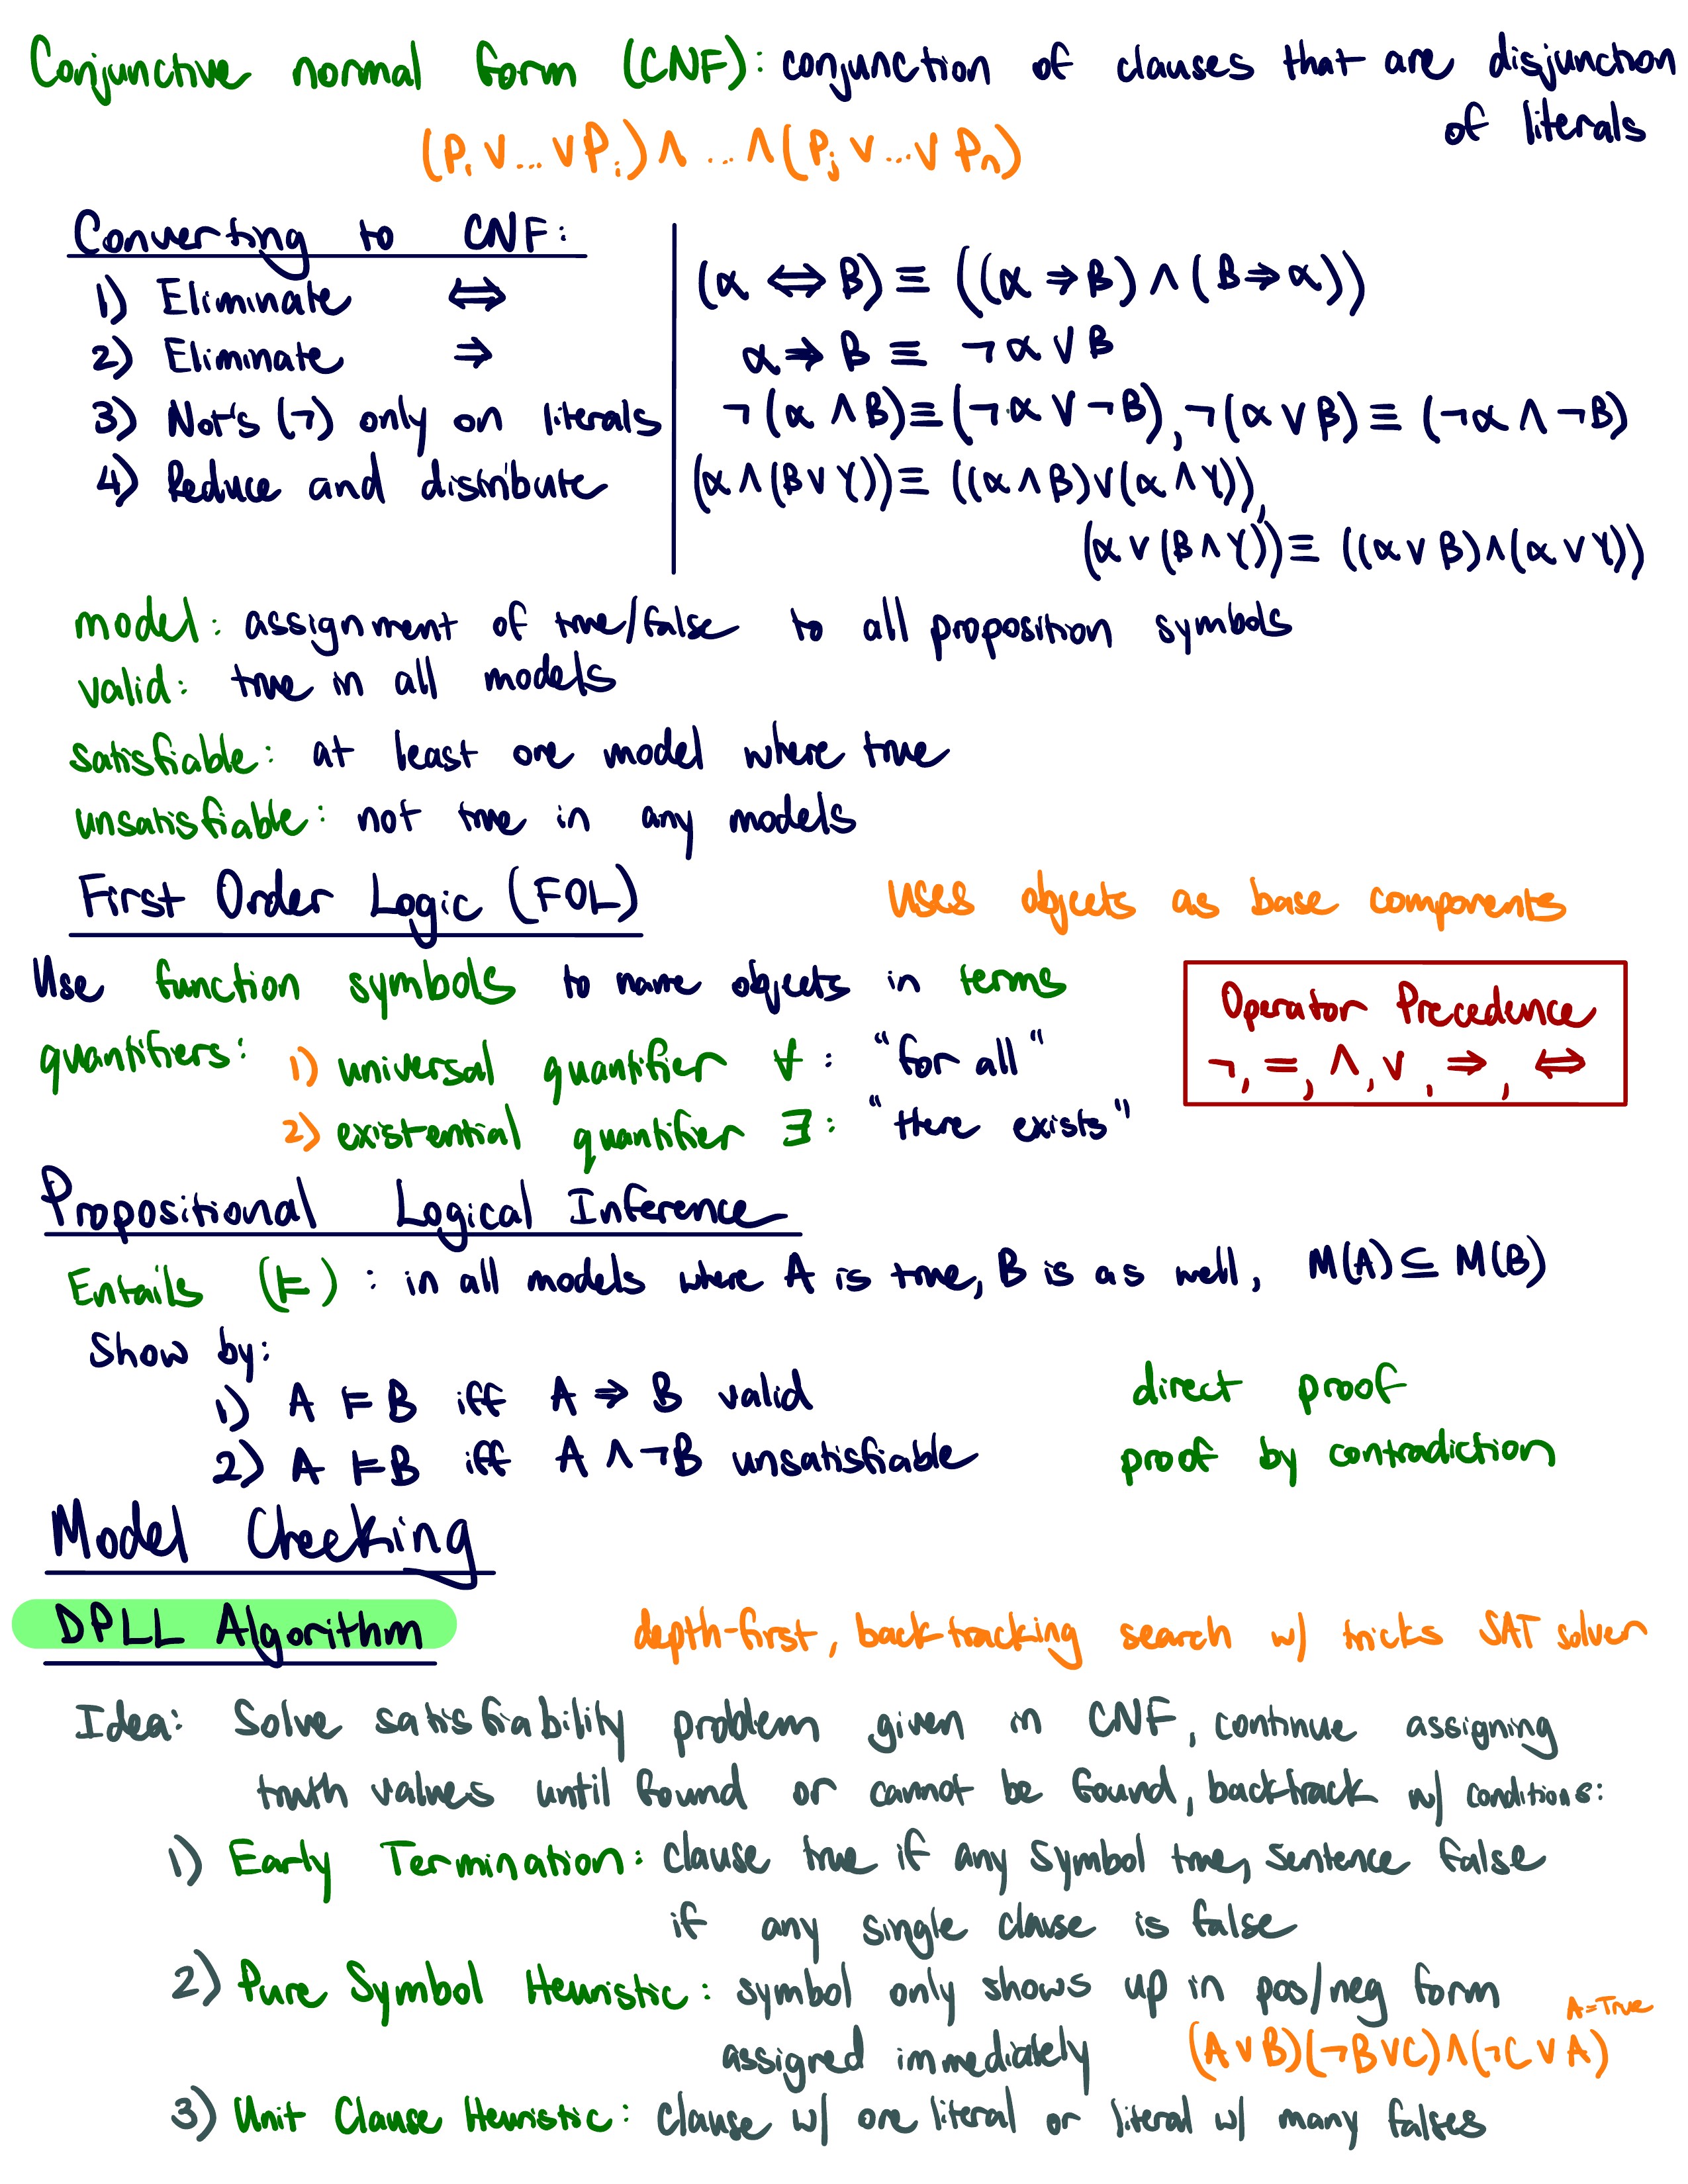 Conjunctive normal form (CNF): conjunction of clauses that are disjunction
of literals
(P₁ ∨ ... ∨ Pᵢ) ∧ ... ∧ (Pⱼ ∨ ... ∨ Pₙ)
Converting to CNF:
1) Eliminate ⇔
(α ⇔ B) ≡ ((α ⇒ B) ∧ (B ⇒ α))
2) Eliminate ⇒
α ⇒ B ≡ ¬α ∨ B
3) Not's (¬) only on literals
¬(α ∧ B) ≡ (¬α ∨ ¬B), ¬(α ∨ B) ≡ (¬α ∧ ¬B)
4) Reduce and distribute
(α ∧ (B ∨ Y)) ≡ ((α ∧ B) ∨ (α ∧ Y)),
(α ∨ (B ∧ Y)) ≡ ((α ∨ B) ∧ (α ∨ Y))
model: assignment of true/false to all proposition symbols
valid: true in all models
satisfiable: at least one model where true
unsatisfiable: not true in any models
First Order Logic (FOL)
uses objects as base components
Use function symbols to name objects in terms
Operator Precedence
¬, =, ∧, ∨, ⇒, ⇔
quantifiers: 1) universal quantifier ∀: "for all"
2) existential quantifier ∃: "there exists"
Propositional Logical Inference
Entails (⊨): in all models where A is true, B is as well, M(A) ⊆ M(B)
Show by:
1) A ⊨ B iff A ⇒ B valid
direct proof
2) A ⊨ B iff A ∧ ¬B unsatisfiable
proof by contradiction
Model Checking
DPLL Algorithm
depth-first, backtracking search w/ tricks SAT solver
Idea: Solve satisfiability problem given in CNF, continue assigning
truth values until found or cannot be found, backtrack w/ conditions:
1) Early Termination: clause true if any symbol true, sentence false
if any single clause is false
2) Pure Symbol Heuristic: symbol only shows up in pos/neg form
A=True
assigned immediately (A ∨ B)(¬B ∨ C) ∧ (¬C ∨ A)
3) Unit Clause Heuristic: clause w/ one literal or literal w/ many falses